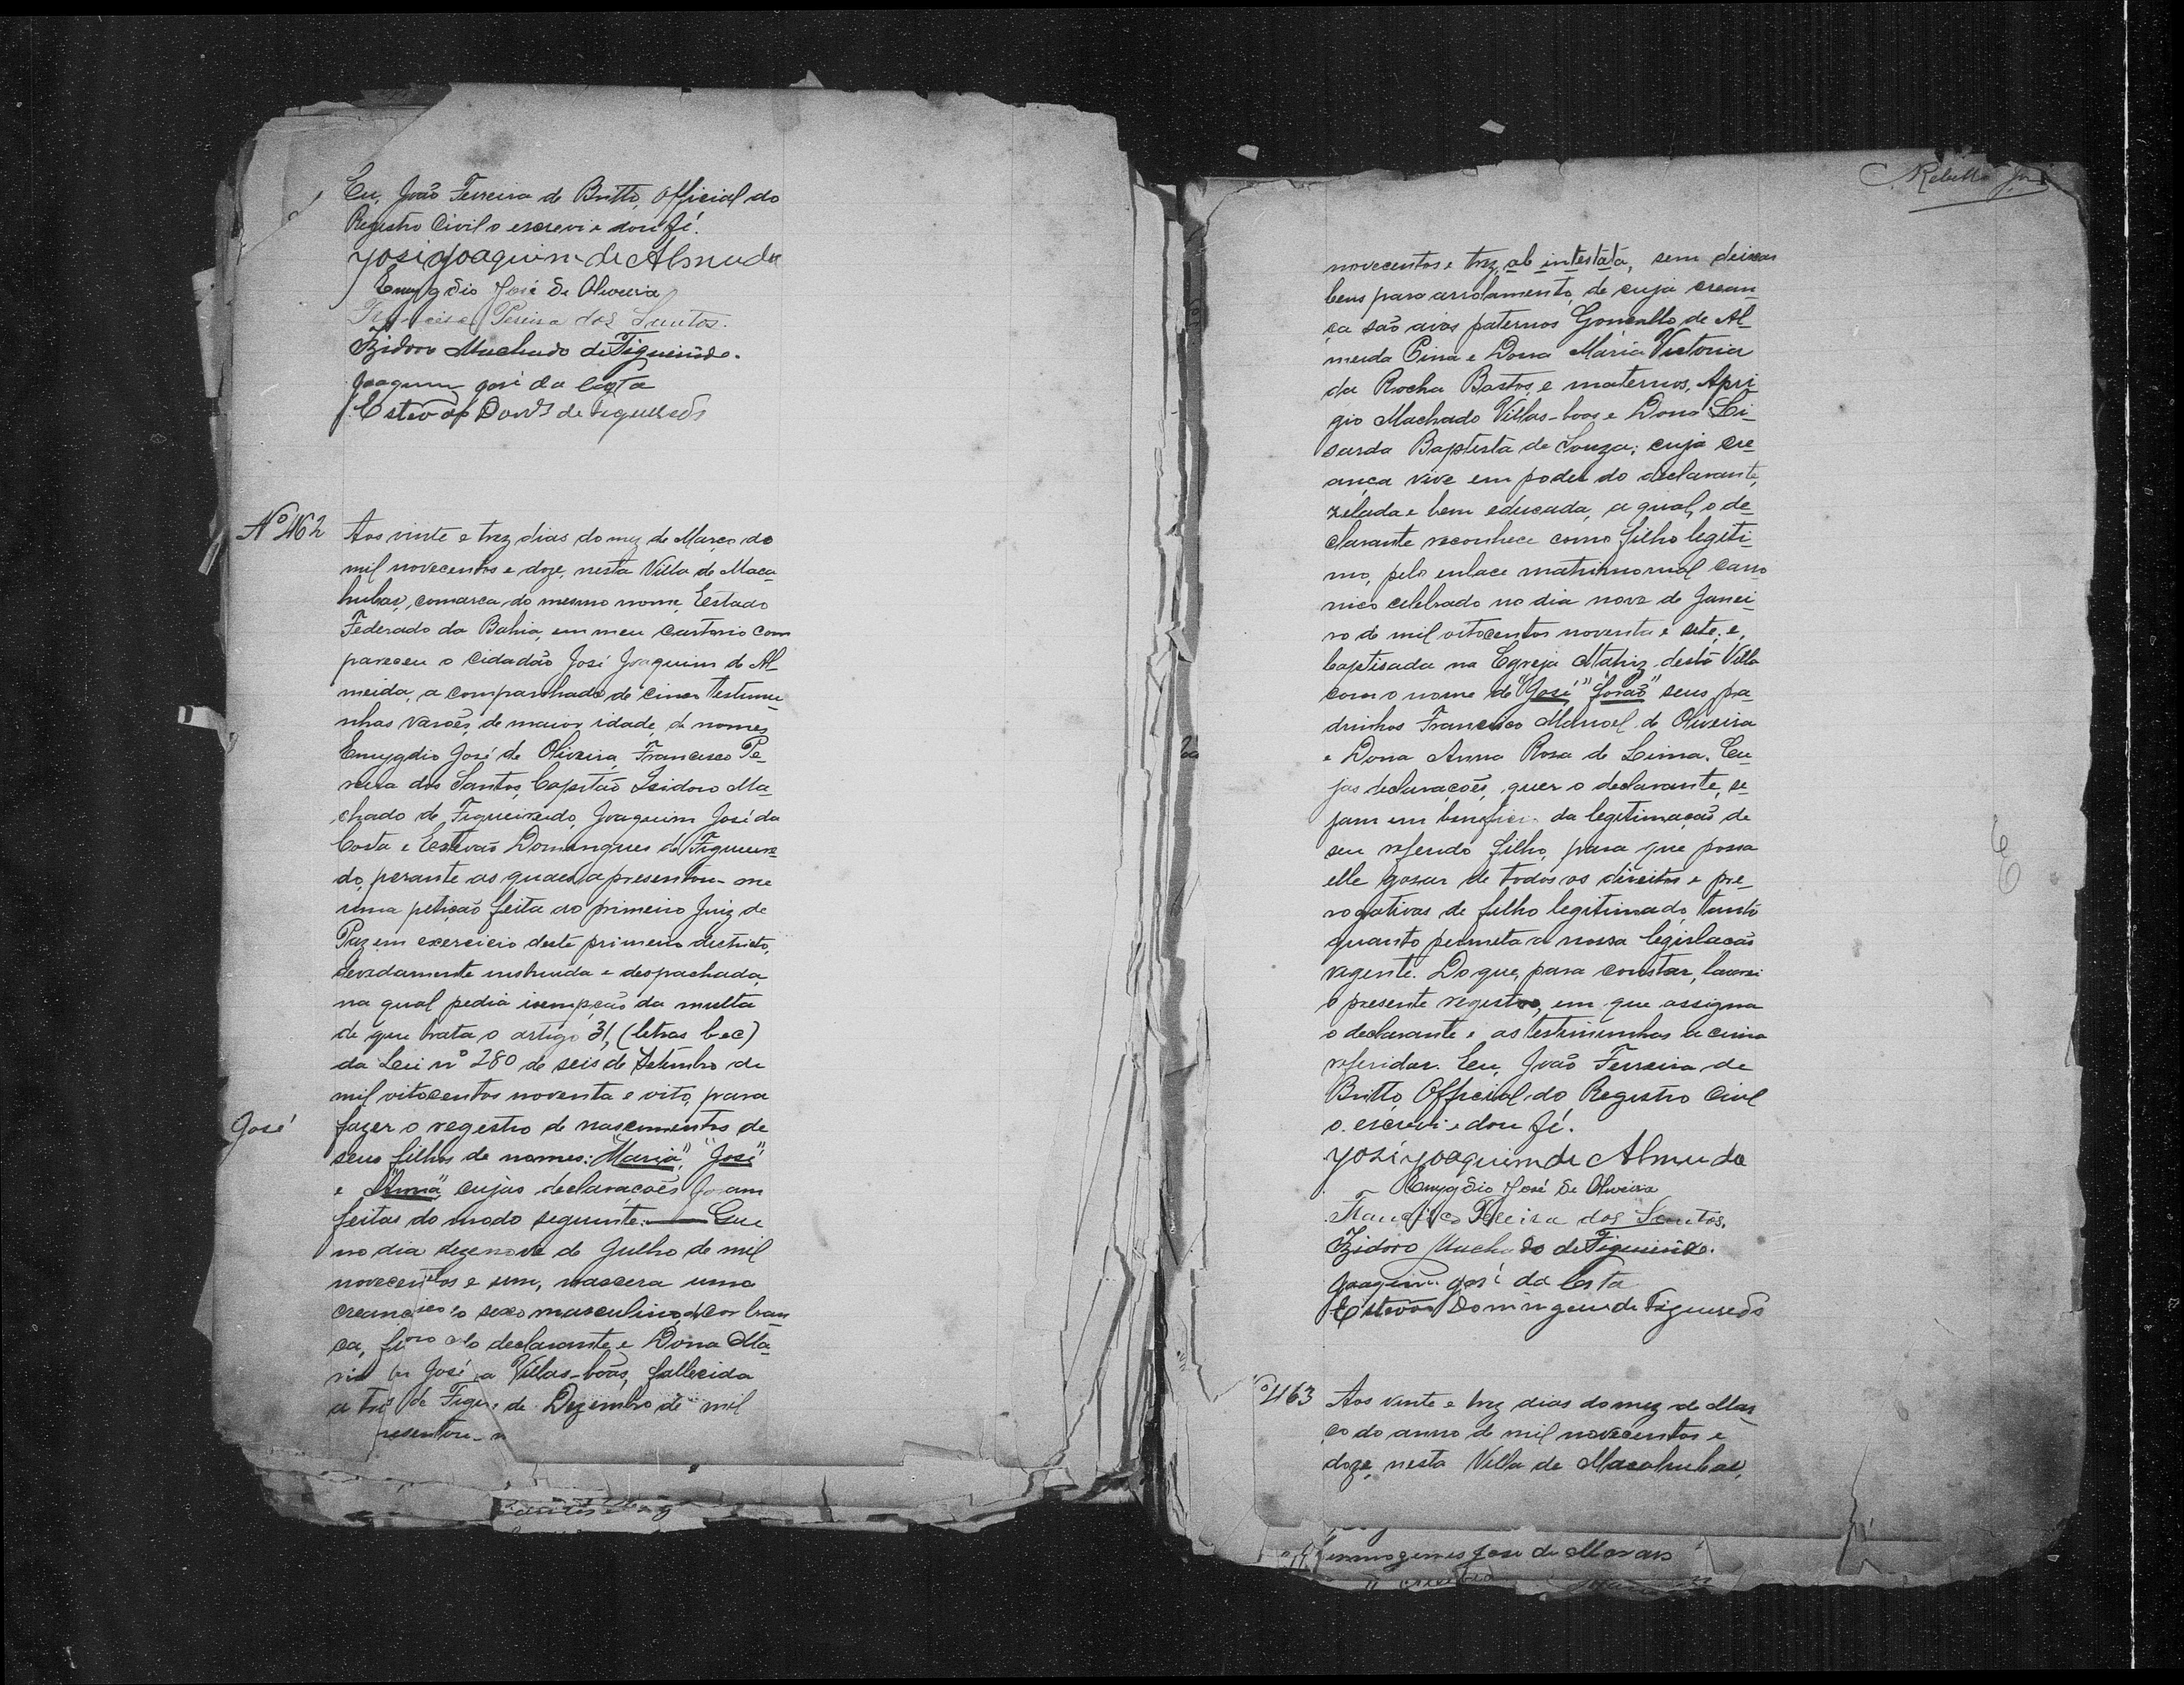 Eu, João Ferreira de Britto, Official do
Registro Civil o escrevi e dou fé.
José Joaquim de Almeida
Emygdio José de Oliveira
Francisco Pereira dos Santos.
Izidoro Machado de Figueirêdo.
Joaquim José da Costa
Estevão Dom.es de Figueiredo
Nº 462
Aos vinte e trez dias do mez de Março de
mil novecentos e doze, nesta Villa de Maca-
hubas, comarca do mesmo nome, Estado
Federado da Bahia, em meu cartorio com
pareceu o cidadão José Joaquim de Al-
meida, acompanhado de cinco testemu-
nhas varões, de maior idade, de nomes
Emygdio José de Oliveira, Francisco Pe-
reira dos Santos, Capitão Izidoro Ma-
chado de Figueiredo, Joaquim José da
Costa e Estevão Domingues de Figueire-
do, perante as quaes apresentou-me
uma petição feita ao primeiro Juiz de
Paz em exercicio deste primeiro districto,
devidamente instruida e despachada,
na qual pedia isempção da multa
de que trata o artigo 31, (letras b e c)
da Lei nº 280 de seis de Setembro de
mil oitocentos noventa e oito, para
José
fazer o registro de nascimentos de
seus filhos de nomes: "Maria", "José"
e "Anna", cujas declarações foram
feitas do modo seguinte: Que
no dia dezenove de Julho de mil
novecentos e um, nascera uma
creança do sexo masculino, de cor bran
ca, filho do declarante e Dona Ma-
ria José Villas-boas, fallecida
a de Dezembro de mil
presentou-
Rebello
novecentos e trez, ab intestata, sem deixar
bens para arrolamento, de cuja crean-
ça são avós paternos Goncallo de Al-
meida Pina e Dona Maria Victoria
da Rocha Bastos, e maternos, Apri-
gio Machado Villas-boas e Dona Li-
sarda Baptista de Souza; cuja cre-
ança vive em poder do declarante,
zelada e bem educada, a qual, o de-
clarante reconhece como filho legiti-
mo, pelo enlace matrimonial cano
nico celebrado no dia nove de Janei-
ro de mil oitocentos noventa e sete; e,
baptisada na Egreja Matriz desta Villa
com o nome de "José", "forão" seus pa-
drinhos Francisco Manoel de Oliveira
e Dona Anna Rosa de Lima. Cu-
jas declarações, quer o declarante, se-
jam em beneficio da legitimação de
seu referido filho, para que possa
elle gosar de todos os direitos e pre-
rogativas de filho legitimado, tanto
quanto permeta a nossa legislacão
vigente. Do que, para constar, lavrei
o presente registro, em que assigna
o declarante e as testimunhas acima
referidas. Eu, João Ferreira de
Britto, Official do Registro Civil
o escrevi e dou fé.
José Joaquim de Almeida
Emygdio José de Oliveira
Francisco Pereira dos Santos.
Izidoro Machado de Figueirêdo.
Joaquim José da Costa
Estevão Domingues de Figueiredo
º 463
Aos vinte e trez dias do mez de Mar-
ço do anno de mil novecentos e
doze, nesta Villa de Macahubas,
José de Moraes